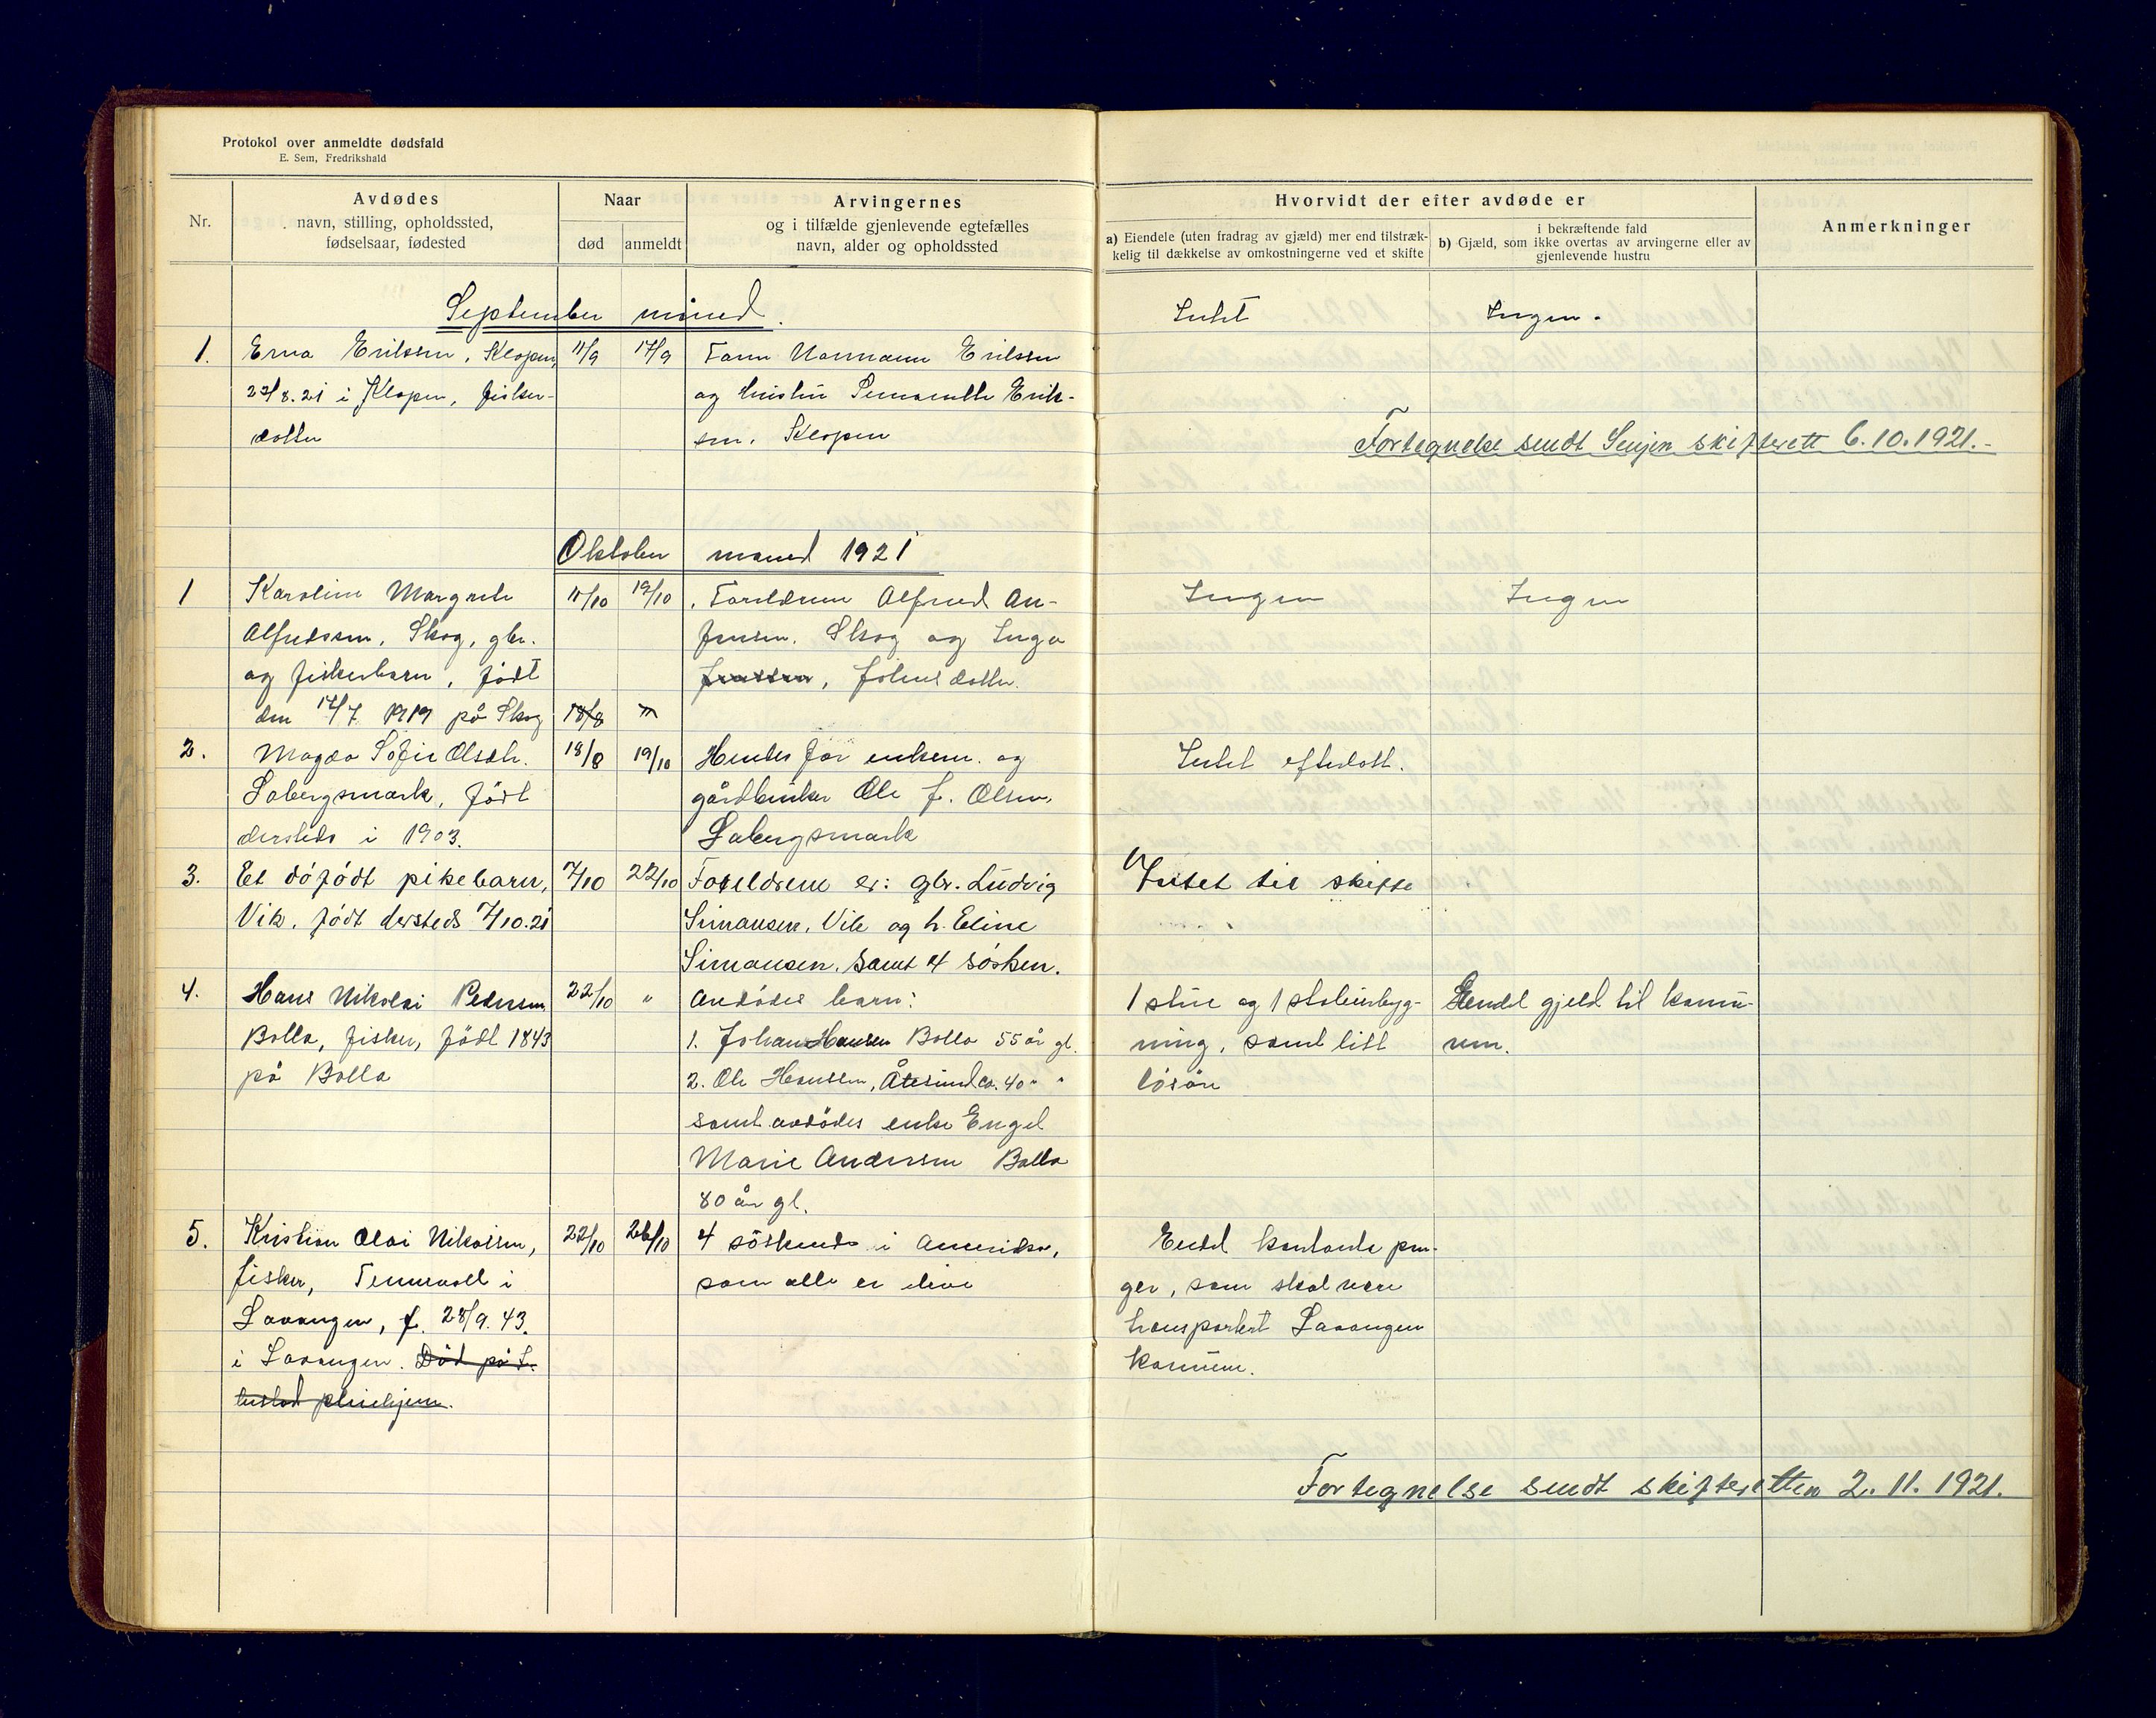 Protokol over anmeldte dødsfald
E. Sem, Fredrikshald
Nr.
Avdødes
navn, stilling, opholdssted,
fødselsaar, fødested
Naar
død
anmeldt
Arvingernes
og i tilfælde gjenlevende egtefælles
navn, alder og opholdssted
Hvorvidt der efter avdøde er
a) Eiendele (uten fradrag av gjæld) mer end tilstræk-
kelig til dækkelse av omkostningerne ved et skifte
i bekræftende fald
b) Gjæld, som ikke overtas av arvingerne eller av
gjenlevende hustru
Anmerkninger
September måned.
1.
Erna Erikssen, Klopen,
22/8.21 i Klopen, fisker-
datter
11/9
17/9
Normann Erikssen
og hustru Erik-
sen, Klopen
Intet
Ingen.
Fortegnelse sendt Senjen skifterett 6.10.1921.-
Oktober måned 1921
1
Karoline Margrete
Alfredssen, Skog, gbr.
og fiskerbarn, født
den 12/7 1919 på Skog
11/10
19/10
Foreldrene Alfred An-
Jensen, Skog og Inga
Jenssen, Johnsdatter.
Ingen
Ingen
18/8
2.
Magda Sofie Olsdtr.
Løbergsmark, født
dersteds i 1903.
18/8
19/10
Hendes far enkem. og
gårdbruker Ole J. Olsen,
Løbergsmark
Intet efterlatt.
3.
Et døfødt pikebarn,
Vik, født dersteds 7/10.21
7/10
22/10
Foreldrene er: gbr. Ludvig
Simonsen, Vik og h. Eline
Simonsen, samt 4 søsken.
Intet til skifte
4.
Hans Nikolai Pedersen
Bolla, fisker, født 1843
på Bolla
22/10
"
Avdødes barn:
1. Johan Hansen Bolla 55 år gl.
2. Ole Hanssen, Ålesund ca. 40 " "
samt avdødes enke Engel
Marie Anderssen Bolla
80 år gl.
1 stue og 1 stoleinbyg-
ning, samt litt
løsøre
Endel gjeld til kommu-
nen.
5.
Kristian Olai Nikaisen,
fisker, Tennevoll i
Lavangen, f. 28/9.43.
i Lavangen. Død på
pleiehjem.
22/10
26/10
4 søskende i Amerika,
som alle er
Endel kontante pen-
ger, som skal være
transportert Lavangen
kommune.
Fortegnelse sendt skifteretten 2.11.1921.